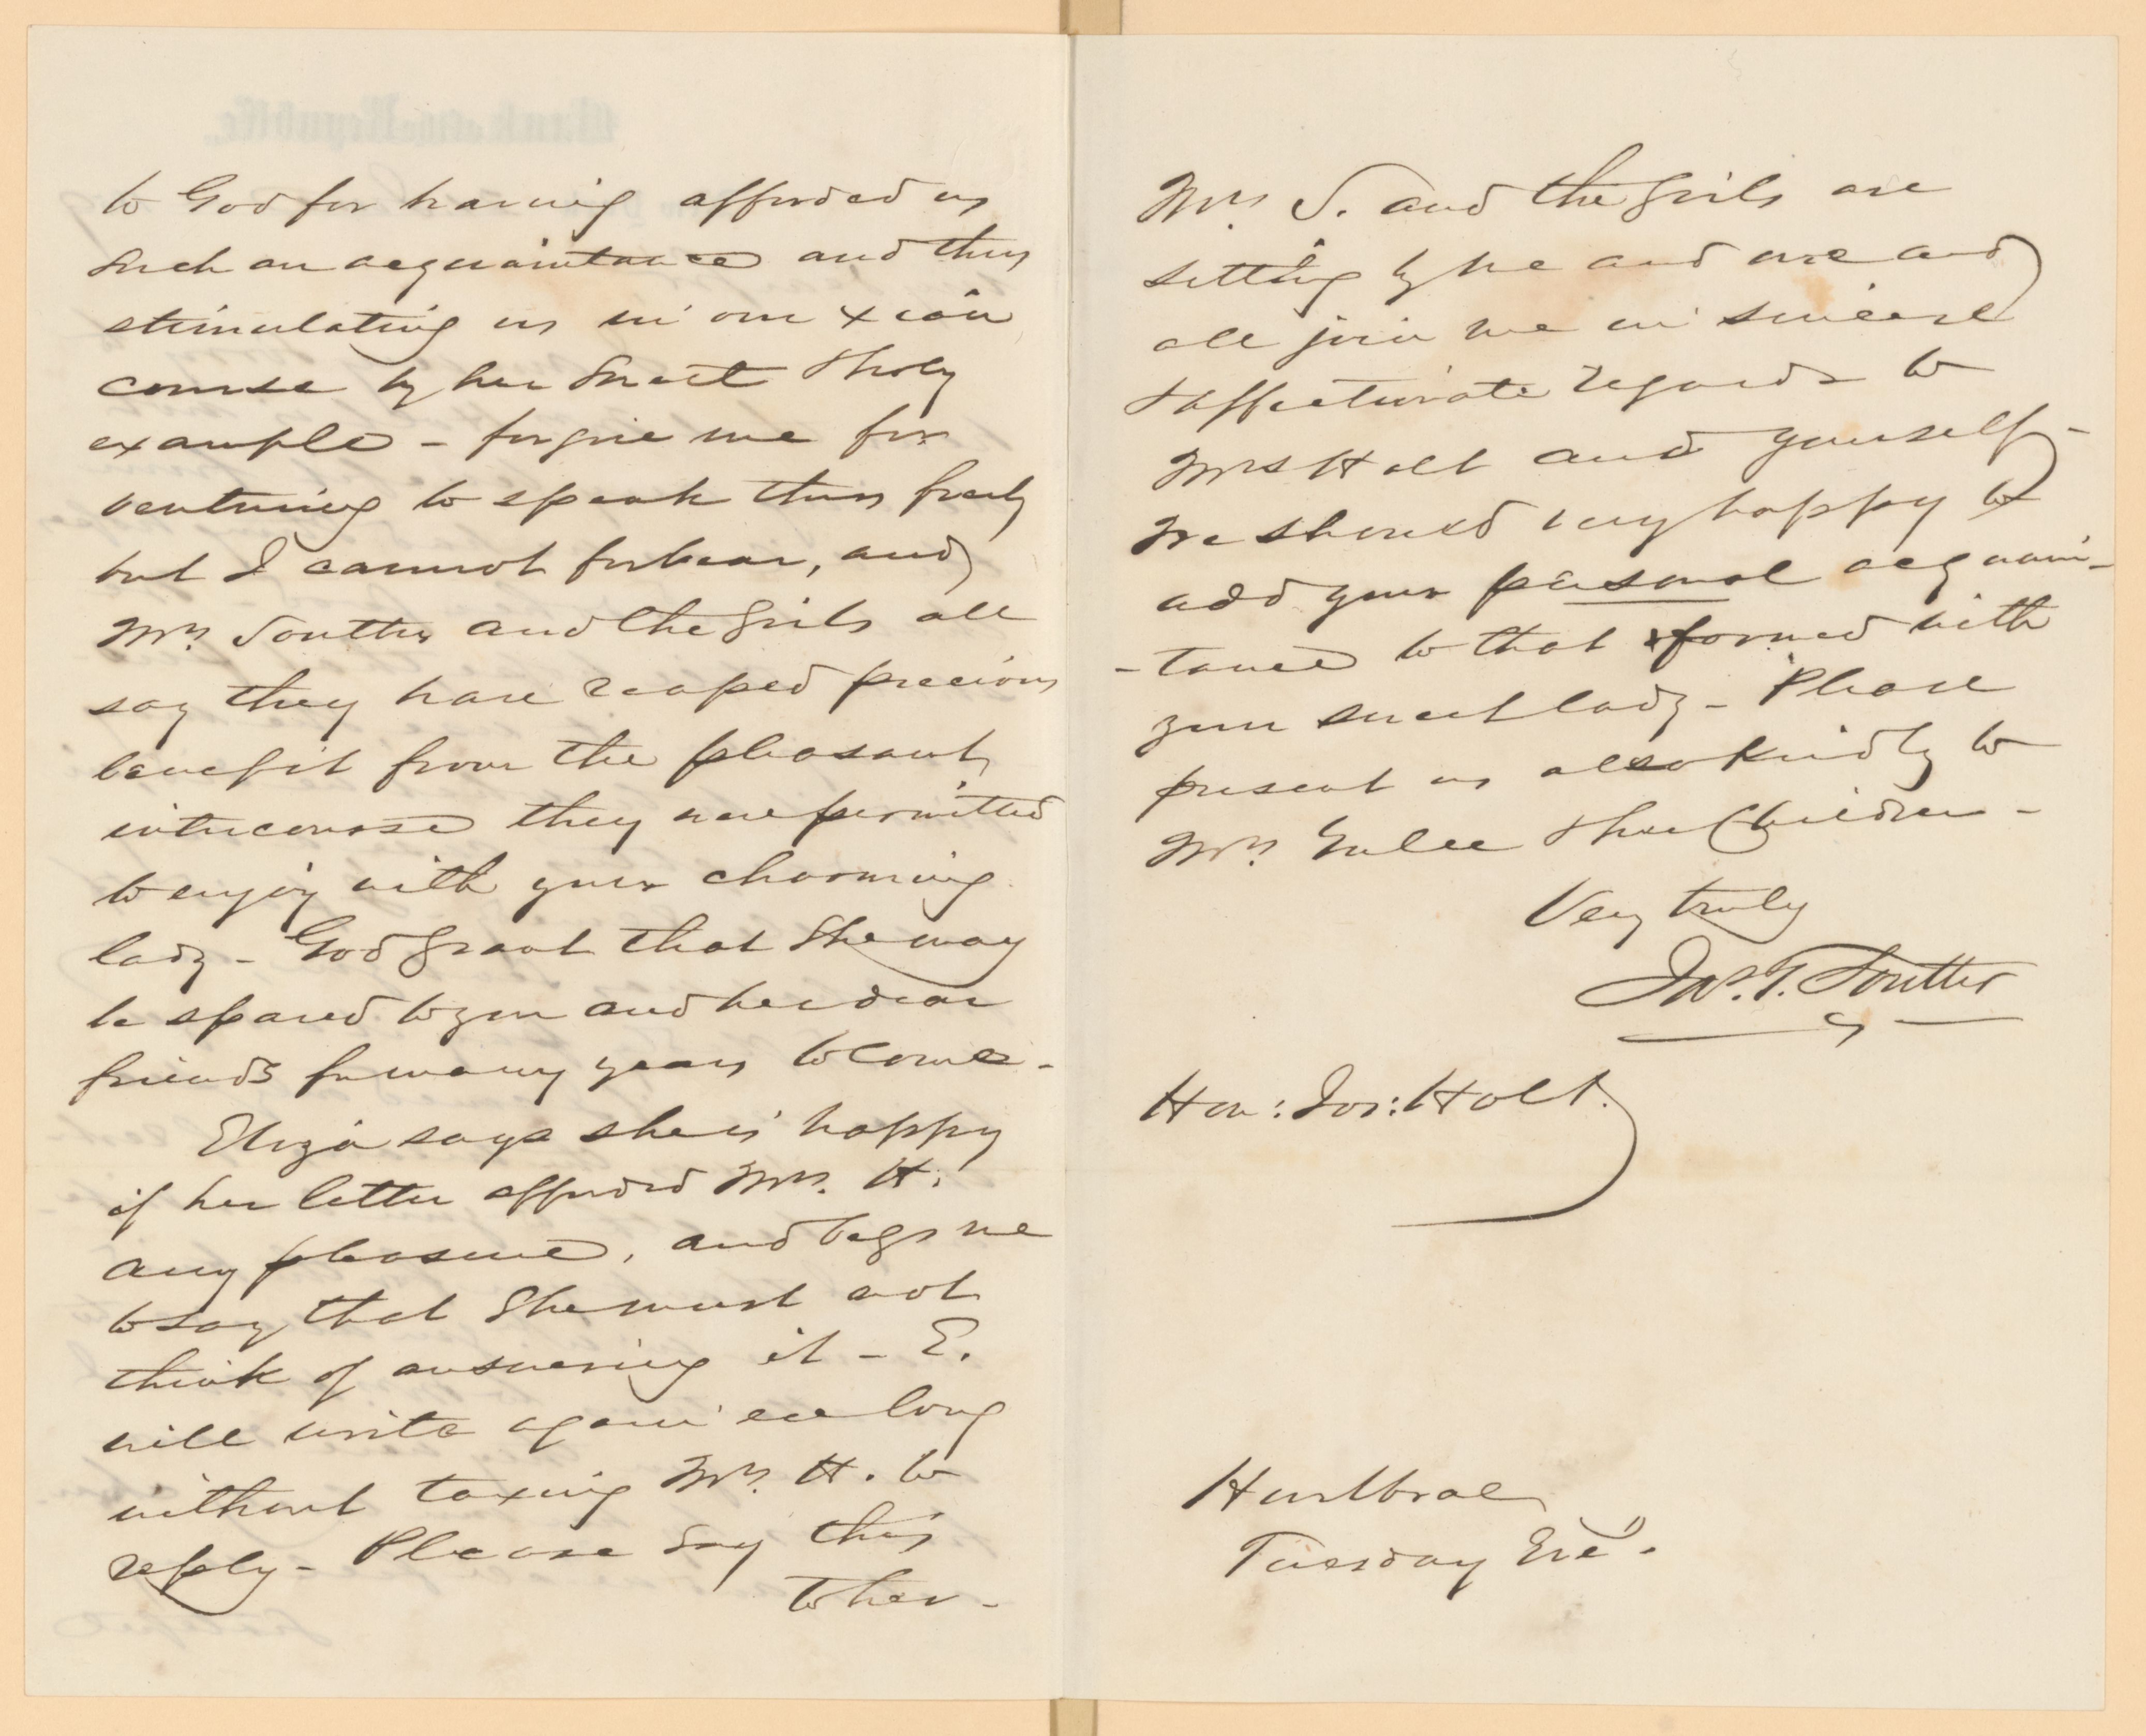 to God for having afforded us
such an acquaintance and thus
stimulating us in our Xian
course by her sweet & holy
example - forgive me for
venturing to speak thus freely
but I cannot forbear, and
Mrs. Soutter and the girls all
say they have reaped precious
benefit from the pleasant
intercourse they were permitted
to enjoy with your charming
lady - God grant that she may
be spared to you and her dear
friends for many years to come -
Eliza says she is happy
if her letter afforded Mrs. H.
any pleasure, and begs me
to say that she must not
think of answering it - E.
will write again ere long
without taxing Mrs. H. to
reply - Please say this
to her -
Mrs. S. and the girls are
sitting by me and one and
all join me in sincere
& affectionate regards to
Mrs Holt and yourself -
We should very happy to
add your personal acquain-
-tance to that formed with
your sweet lady - Please
present us also kindly to
Mrs. Yulee & her children -
Very truly
Jas. T. Soutter
Hon: Jos: Holt.
Tuesday Eve.